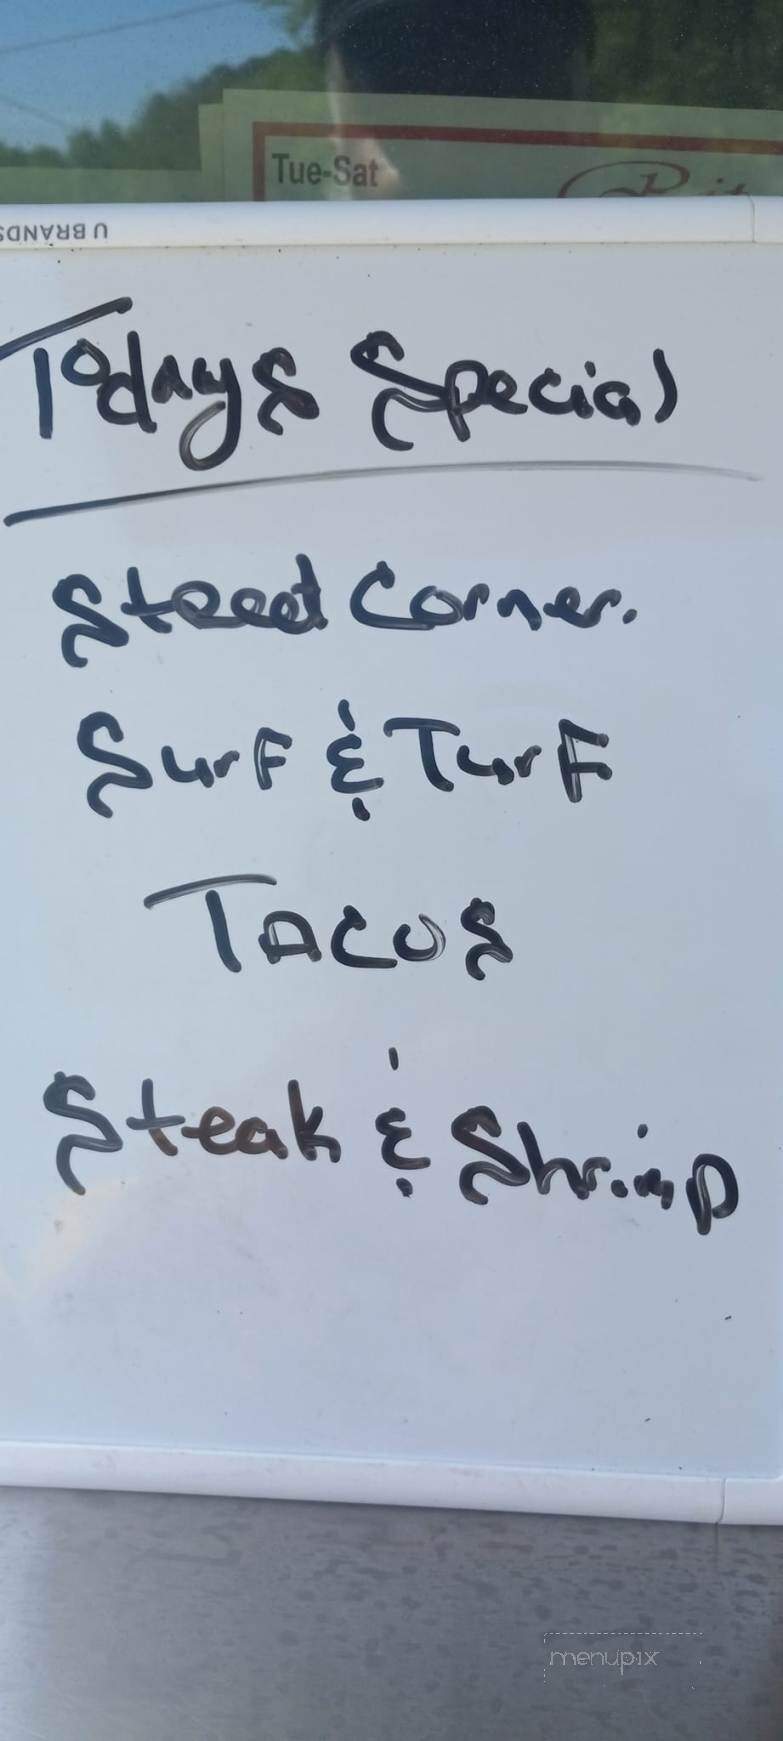 Tue-Sat
U BRANDS
Todays Special
Street Corner.
Surf & Turf
Tacos
Steak & Shrimp
menupix